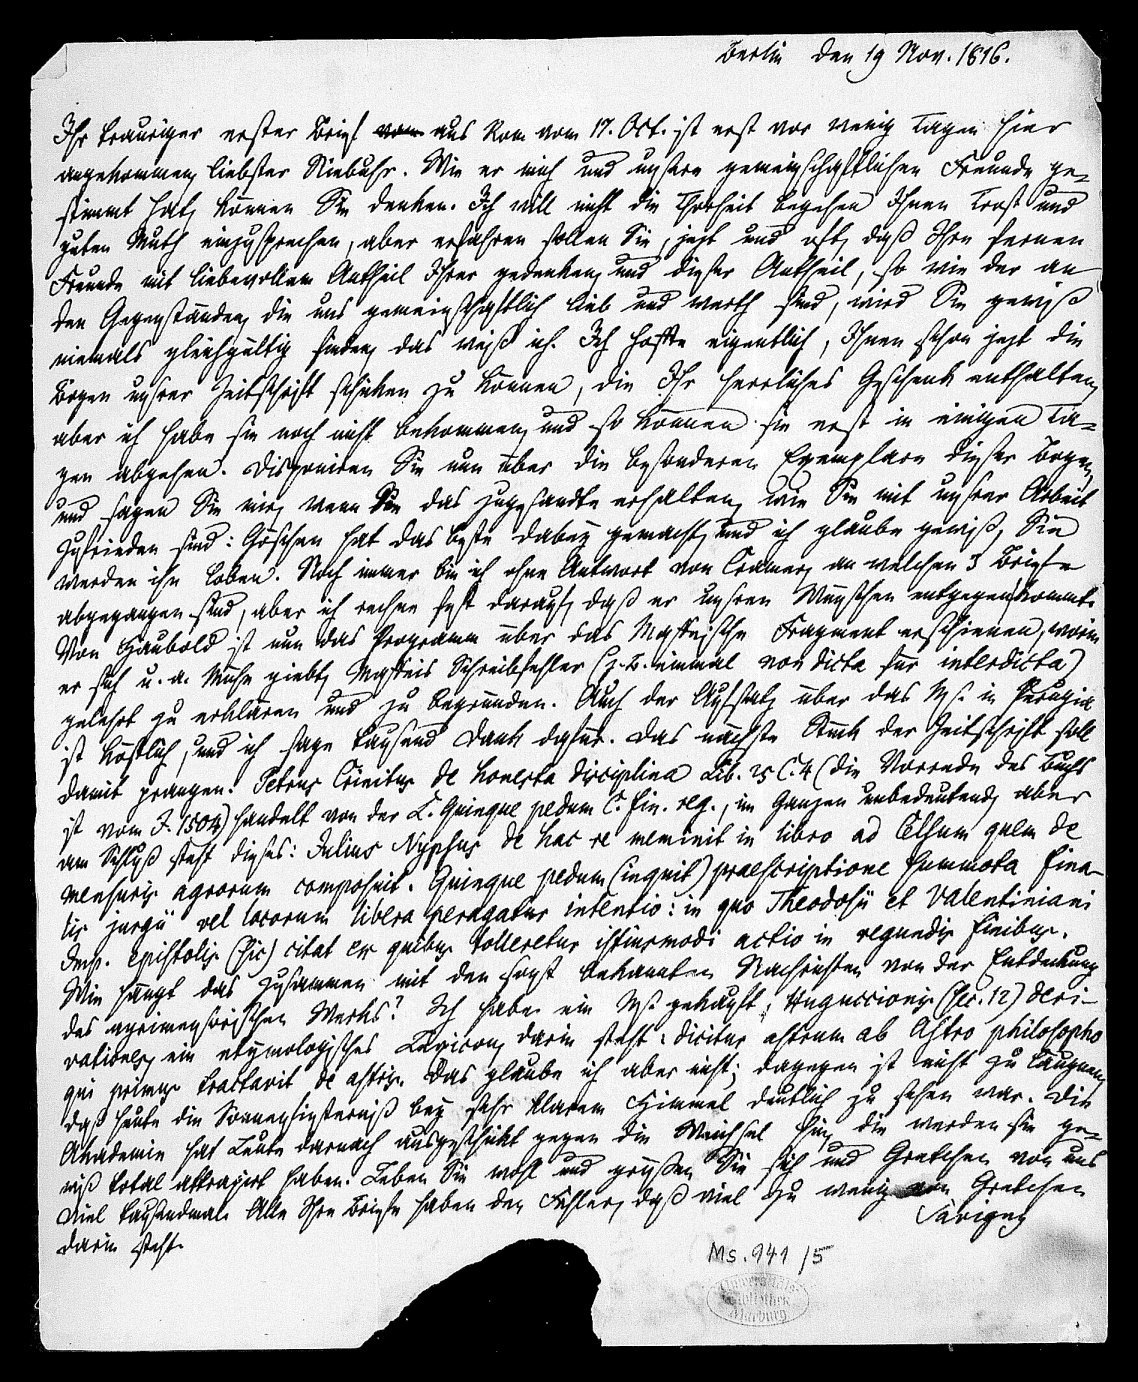 Berlin den 19 Nov. 1816.
Ihr trauriger erster Brief vom aus Rom vom 17. Oct. ist erst vor wenig Tagen hier
angekommen, liebster Niebuhr. Wie er mich und unsere gemeinschaftlichen Freunde ge-
stimmt hat, können Sie denken. Ich will nicht die Thorheit begehen Ihnen Trost und
guten Muth einzusprechen, aber erfahren sollen Sie, jezt und oft, daß Ihre fernen
Freunde mit liebevollem Antheil Ihrer gedenken, und dieser Antheil, so wie der an
den Gegenständen, die uns gemeinschaftlich lieb und werth sind, wird Sie gewiß
niemals gleichgültig finden, das weiß ich. Ich hoffte eigentlich, Ihnen schon jezt die
Bogen unsrer Zeitschrift schicken zu können, die Ihr herrliches Geschenk enthalten,
aber ich habe sie noch nicht bekommen, und so können sie erst in einigen Ta-
gen abgehen. Disponiren Sie nun über die besonderen Exemplare dieser Bogen,
und sagen Sie mir, wenn Sie das zugesandte erhalten, wie Sie mit unsrer Arbeit
zufrieden sind: Göschen hat das beste dabey gemacht, und ich glaube gewiß, Sie
werden ihn loben. Noch immer bin ich ohne Antwort von Cramer, an welchen 3 Briefe
abgegangen sind, aber ich rechne fest darauf, daß er unsren Wünschen entgegen kommt.
Von Haubold ist nun das Programm über das Maffeische Fragment erschienen, worin
er sich u. a. Mühe giebt, Maffeis Schreibfehler (z. B. einmal non dicta für interdicta)
gelehrt zu erklären und zu begründen. Auch der Aufsatz über das Ms. in Perugia
ist köstlich, und ich sage tausend Dank dafür. Das nächste Stück der Zeitschrift soll
damit prangen. Petrus Crinitus de honesta disciplina Lib. 25 C. 4 (die Vorrede des Buchs
ist vom J. 1504) handelt von der L. Quinque pedum C. fin. reg., im Ganzen unbedeutend, aber
am Schluß steht dieses: Julius Nypsus de hac re meminit in libro ad Celsum quem de
mensuris agrorum composuit. Quinque pedum (inquit) praescriptione summota fina-
lis jurgii vel locorum libera peragatur intentio: in quo Theodosii et Valentiniani
Imp. epistolis (sic) citat ex quibus tolleretur istiusmodi actio in regundis finibus.
Wie hängt das zusammen mit den sonst bekannten Nachrichten von der Entdeckung
des agrimensorischen Werks? Ich habe ein Ms. gekauft, Huguccionis (sec. 12) deri-
vationes, ein etymologisches Lexicon, darin steht: dicitur astrum ab Astro philosopho
qui primus tractavit de astris. Das glaube ich aber nicht; dagegen ist nicht zu läugnen,
daß heute die Sonnenfinsterniß bey sehr klarem Himmel deutlich zu sehen war. Die
Akademie hat Leute darnach ausgeschickt gegen die Weichsel hin, die werden sie ge-
wiß total attrapirt haben. Leben Sie wohl und grüßen Sie sich und Gretchen von uns
viel tausendmal. Alle Ihre Briefe haben den Fehler, daß viel zu wenig von Gretchen
darin steht.
Savigny
Ms. 941/5
Universitäts-
Bibliothek
Marburg